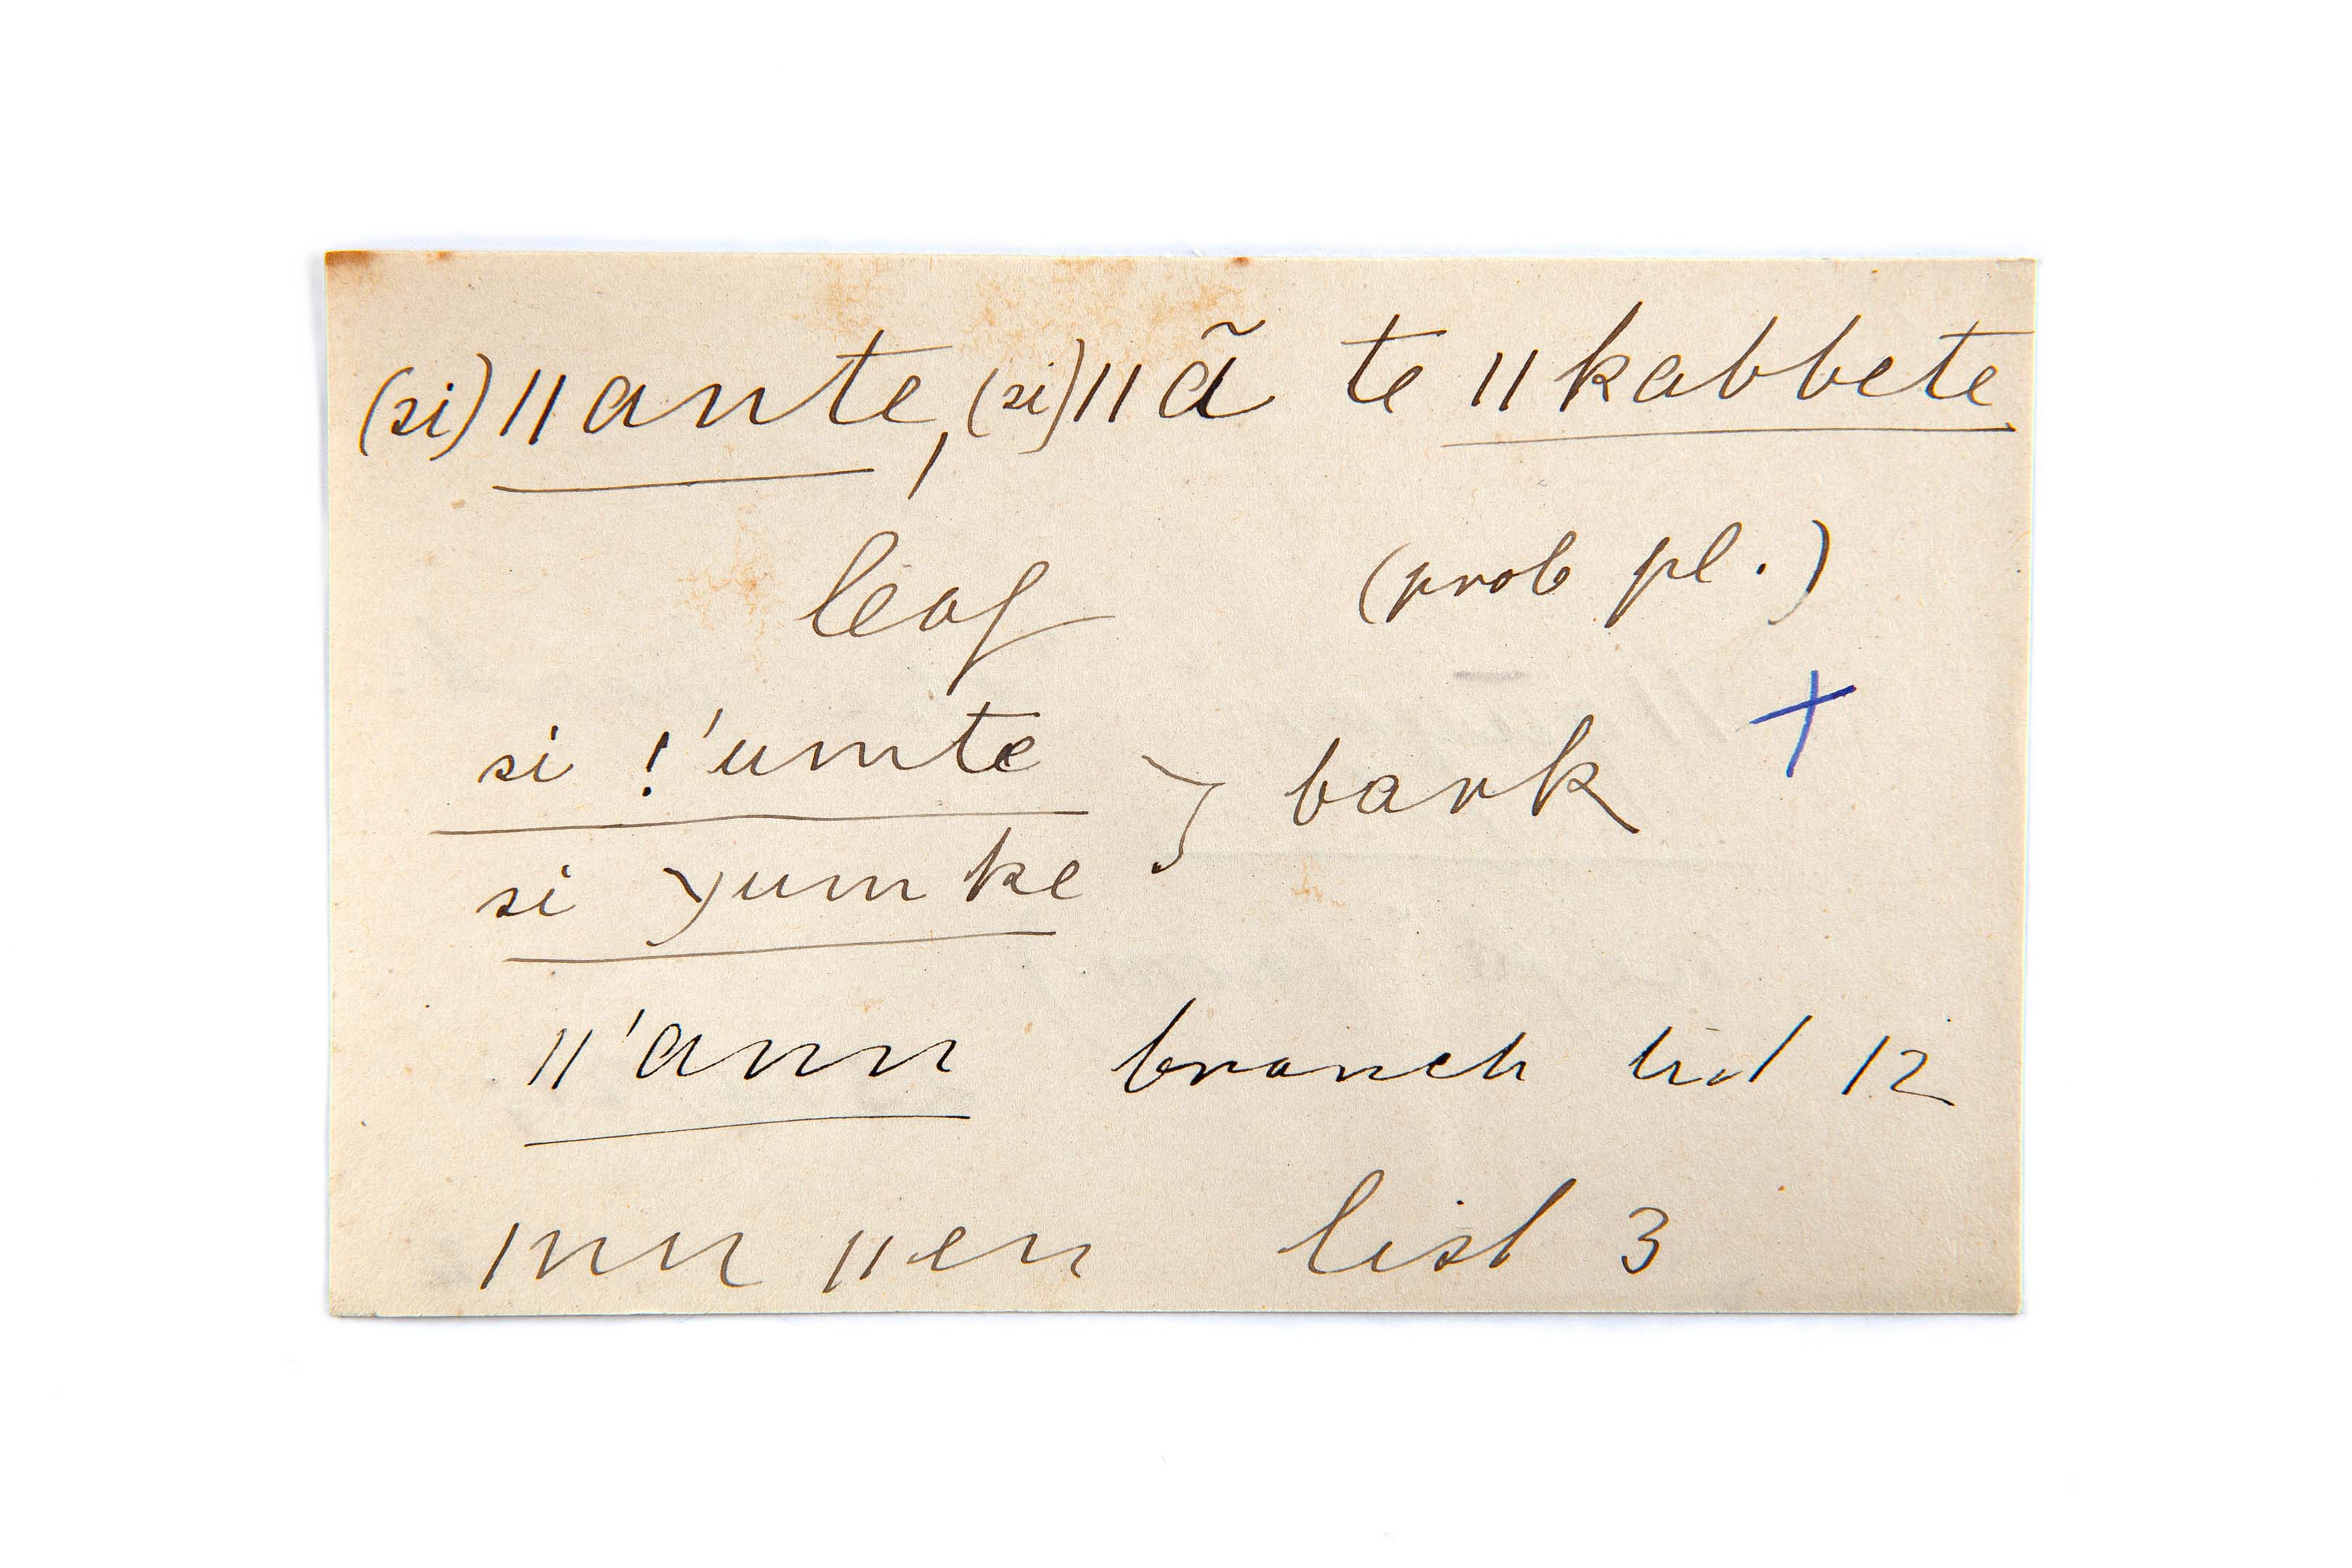 (si) ǁante, (si) ǁã te ǁkabbete
leaf (prob pl.)
si !'umte } bark +
si χumke
ǁ'ann branch list 12
ǀnn ǁen list 3